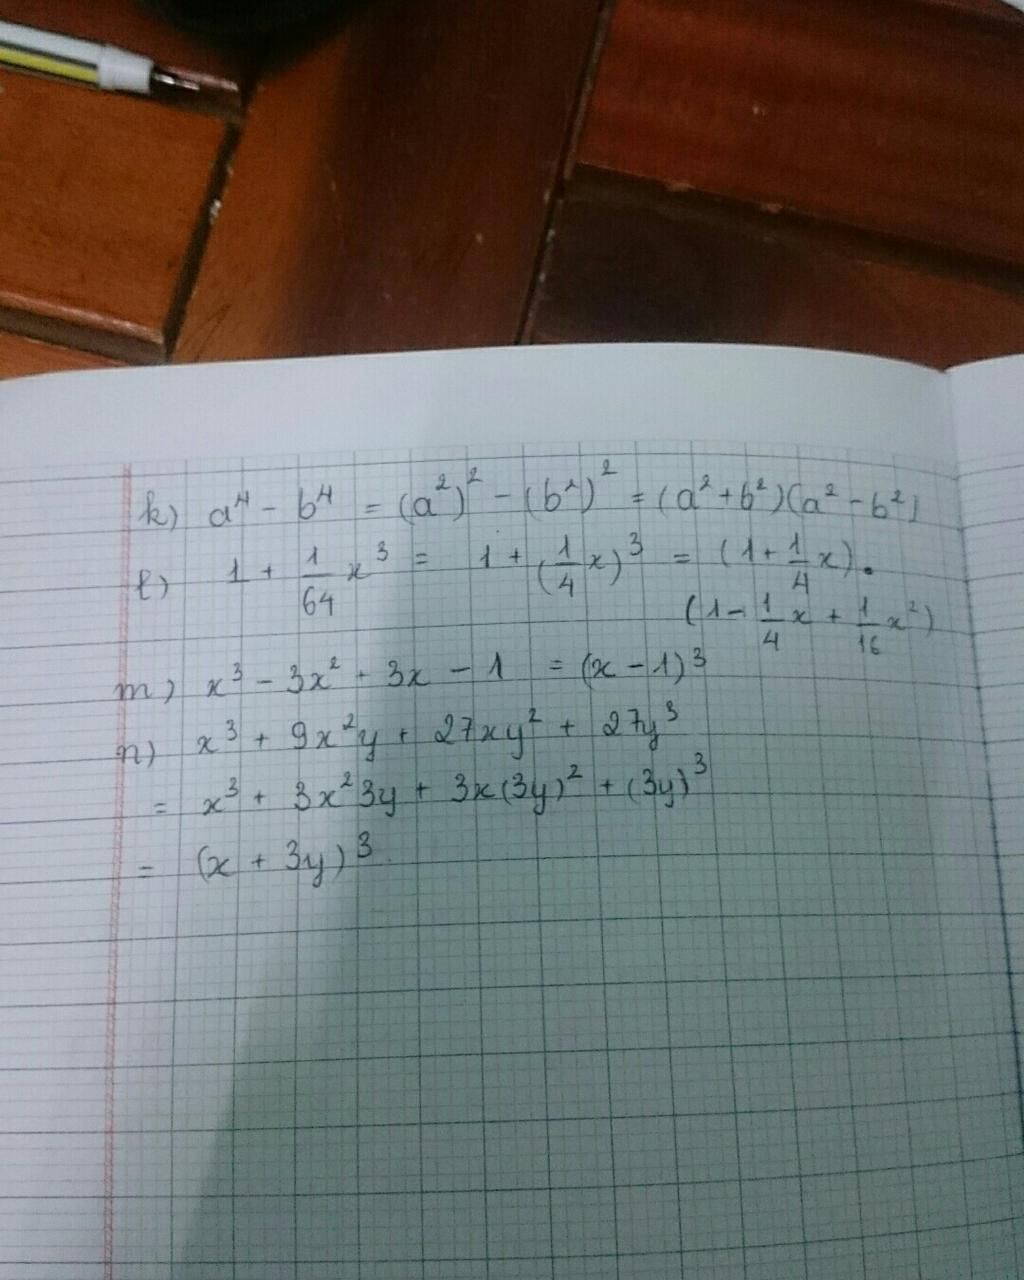 k) a⁴ - b⁴ = (a²)² - (b²)² = (a² + b²)(a² - b²)
l) 1 + 1/64 x³ = 1 + (1/4 x)³ = (1 + 1/4 x).
(1 - 1/4 x + 1/16 x²)
m) x³ - 3x² + 3x - 1 = (x - 1)³
n) x³ + 9x²y + 27xy² + 27y³
= x³ + 3x²3y + 3x(3y)² + (3y)³
= (x + 3y)³